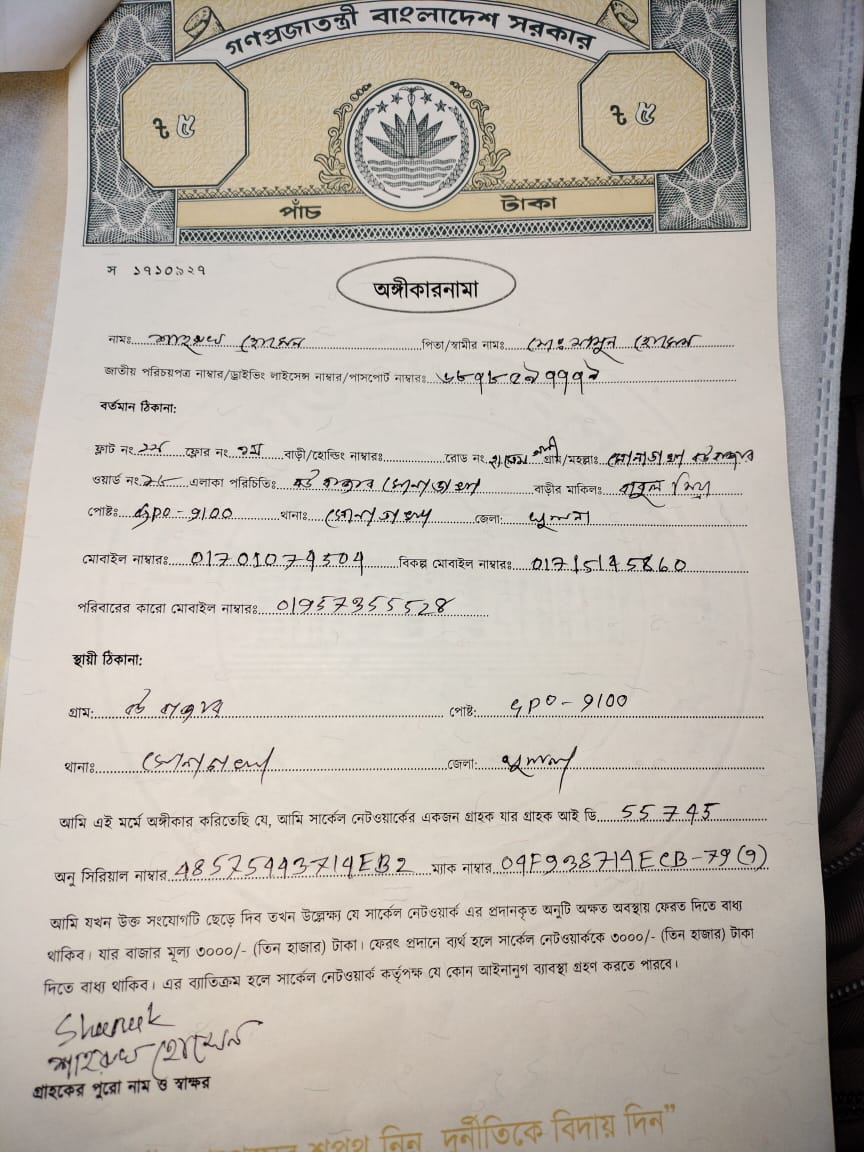 গণপ্রজাতন্ত্রী বাংলাদেশ সরকার
৳ ৫ ৳ ৫
পাঁচ টাকা
স ১৭১০৯২৭
অঙ্গীকারনামা
নামঃ হোসেন পিতা/স্বামীর নামঃ মোঃ মামুন হোসেন
জাতীয় পরিচয়পত্র নাম্বার/ড্রাইভিং লাইসেন্স নাম্বার/পাসপোর্ট নাম্বারঃ
বর্তমান ঠিকানা:
ফ্লাট নং ফ্লোর নং বাড়ী/হোল্ডিং নাম্বারঃ রোড নং গ্রাম/মহল্লাঃ সোনাডাঙ্গা
ওয়ার্ড নং এলাকা পরিচিতিঃ সোনাডাঙ্গা বাড়ীর মালিকঃ বাবুল মিয়া
পোষ্টঃ GPO-9100 থানাঃ সোনাডাঙ্গা জেলা: খুলনা
মোবাইল নাম্বারঃ 01701074504 বিকল্প মোবাইল নাম্বারঃ 01715145860
পরিবারের কারো মোবাইল নাম্বারঃ 01957355528
স্থায়ী ঠিকানা:
গ্রাম: পোষ্ট: GPO-9100
থানাঃ সোনাডাঙ্গা জেলা: খুলনা
আমি এই মর্মে অঙ্গীকার করিতেছি যে, আমি সার্কেল নেটওয়ার্কের একজন গ্রাহক যার গ্রাহক আই ডি 55745
অনু সিরিয়াল নাম্বার 48575443714EB2 ম্যাক নাম্বার 04F938714ECB-79(9)
আমি যখন উক্ত সংযোগটি ছেড়ে দিব তখন উল্লেখ্য যে সার্কেল নেটওয়ার্ক এর প্রদানকৃত অনুটি অক্ষত অবস্থায় ফেরত দিতে বাধ্য
থাকিব। যার বাজার মূল্য ৩০০০/- (তিন হাজার) টাকা। ফেরৎ প্রদানে ব্যর্থ হলে সার্কেল নেটওয়ার্ককে ৩০০০/- (তিন হাজার) টাকা
দিতে বাধ্য থাকিব। এর ব্যাতিক্রম হলে সার্কেল নেটওয়ার্ক কর্তৃপক্ষ যে কোন আইনানুগ ব্যাবস্থা গ্রহণ করতে পারবে।
হোসেন
গ্রাহকের পুরো নাম ও স্বাক্ষর
শপথ নিন, দুর্নীতিকে বিদায় দিন”